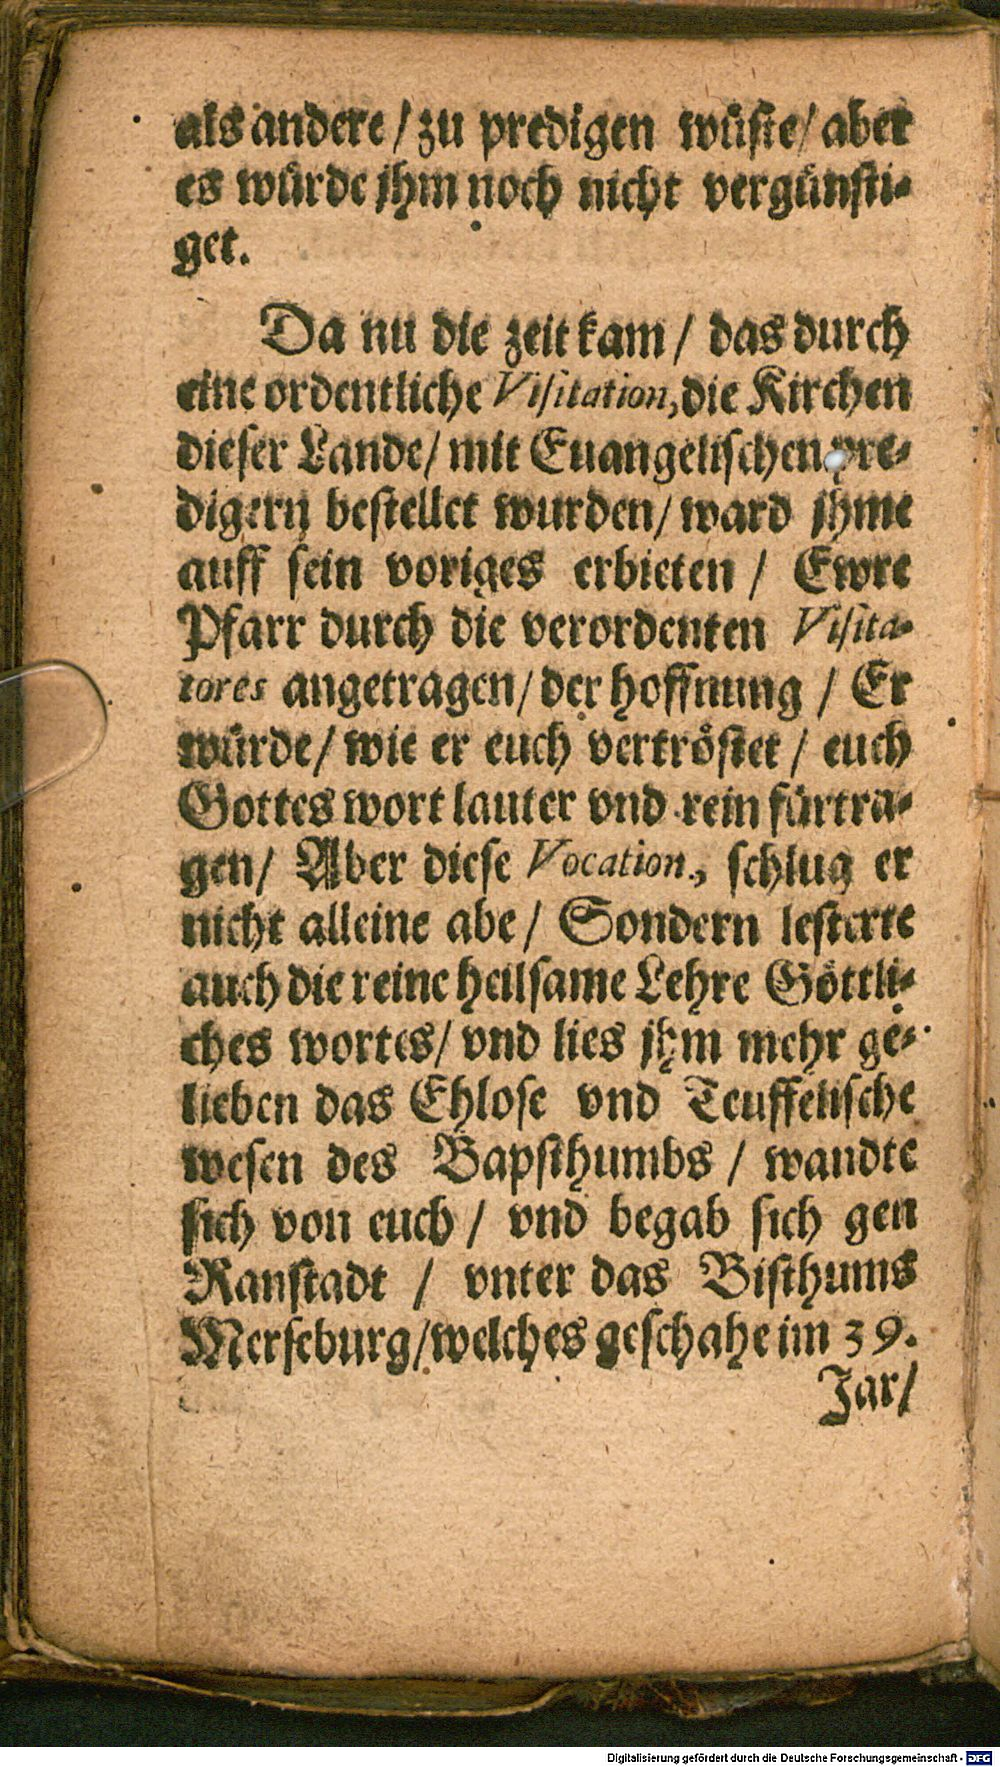 als andere / zu predigen wüste / aber
es würde jhm noch nicht vergünsti-
get.
Da nu die zeit kam / das durch
eine ordentliche Visitation, die Kirchen
dieser Lande / mit Euangelischen pre-
digern bestellet wurden / ward jhme
auff sein voriges erbieten / Ewre
Pfarr durch die verordenten Visita-
tores angetragen / der hoffnung / Er
würde / wie er euch vertröstet / euch
Gottes wort lauter vnd rein fürtra-
gen / Aber diese Vocation, schlug er
nicht alleine abe / Sondern lesterte
auch die reine heilsame Lehre Göttli-
ches wortes / vnd lies jhm mehr ge-
lieben das Ehlose vnd Teuffelische
wesen des Bapsthumbs / wandte
sich von euch / vnd begab sich gen
Ranstadt / vnter das Bisthums
Merseburg / welches geschahe im 39.
Jar /
Digitalisierung gefördert durch die Deutsche Forschungsgemeinschaft - DFG